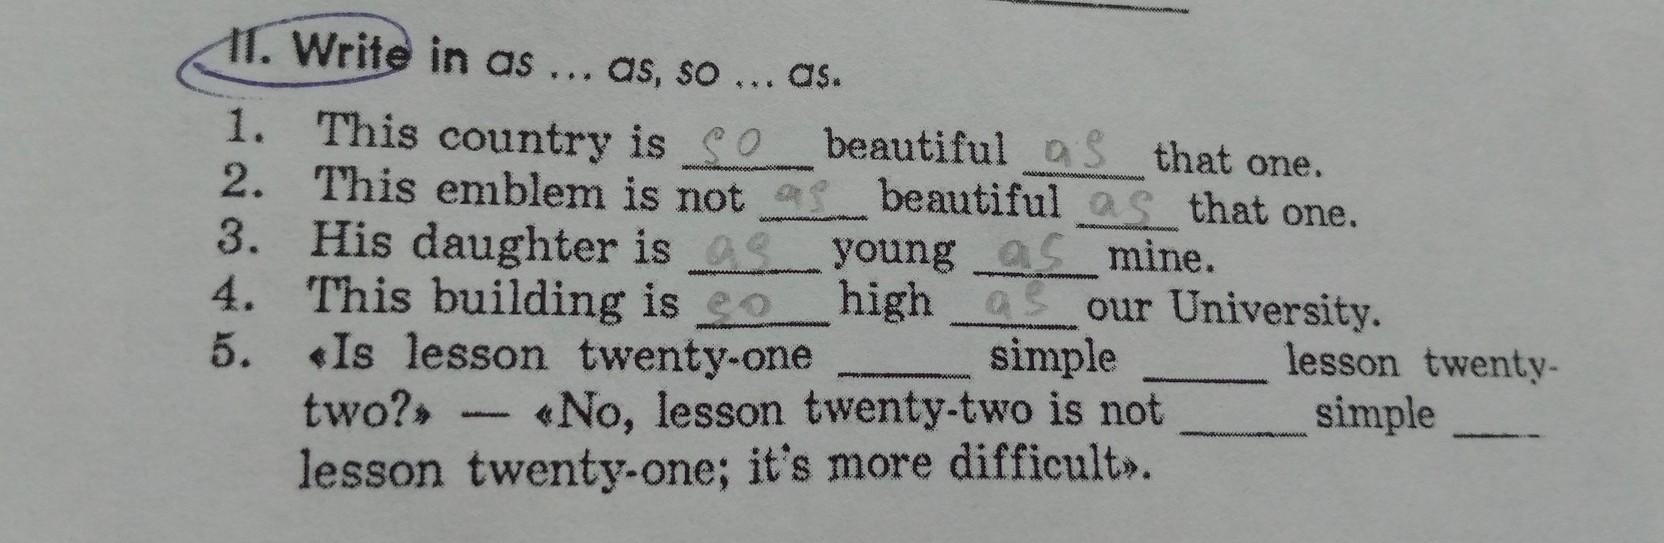 II. Write in as ... as, so ... as.
1. This country is so beautiful as that one.
2. This emblem is not as beautiful as that one.
3. His daughter is as young as mine.
4. This building is so high as our University.
5. «Is lesson twenty-one _____ simple _____ lesson twenty-
two?» — «No, lesson twenty-two is not _____ simple ____
lesson twenty-one; it's more difficult».